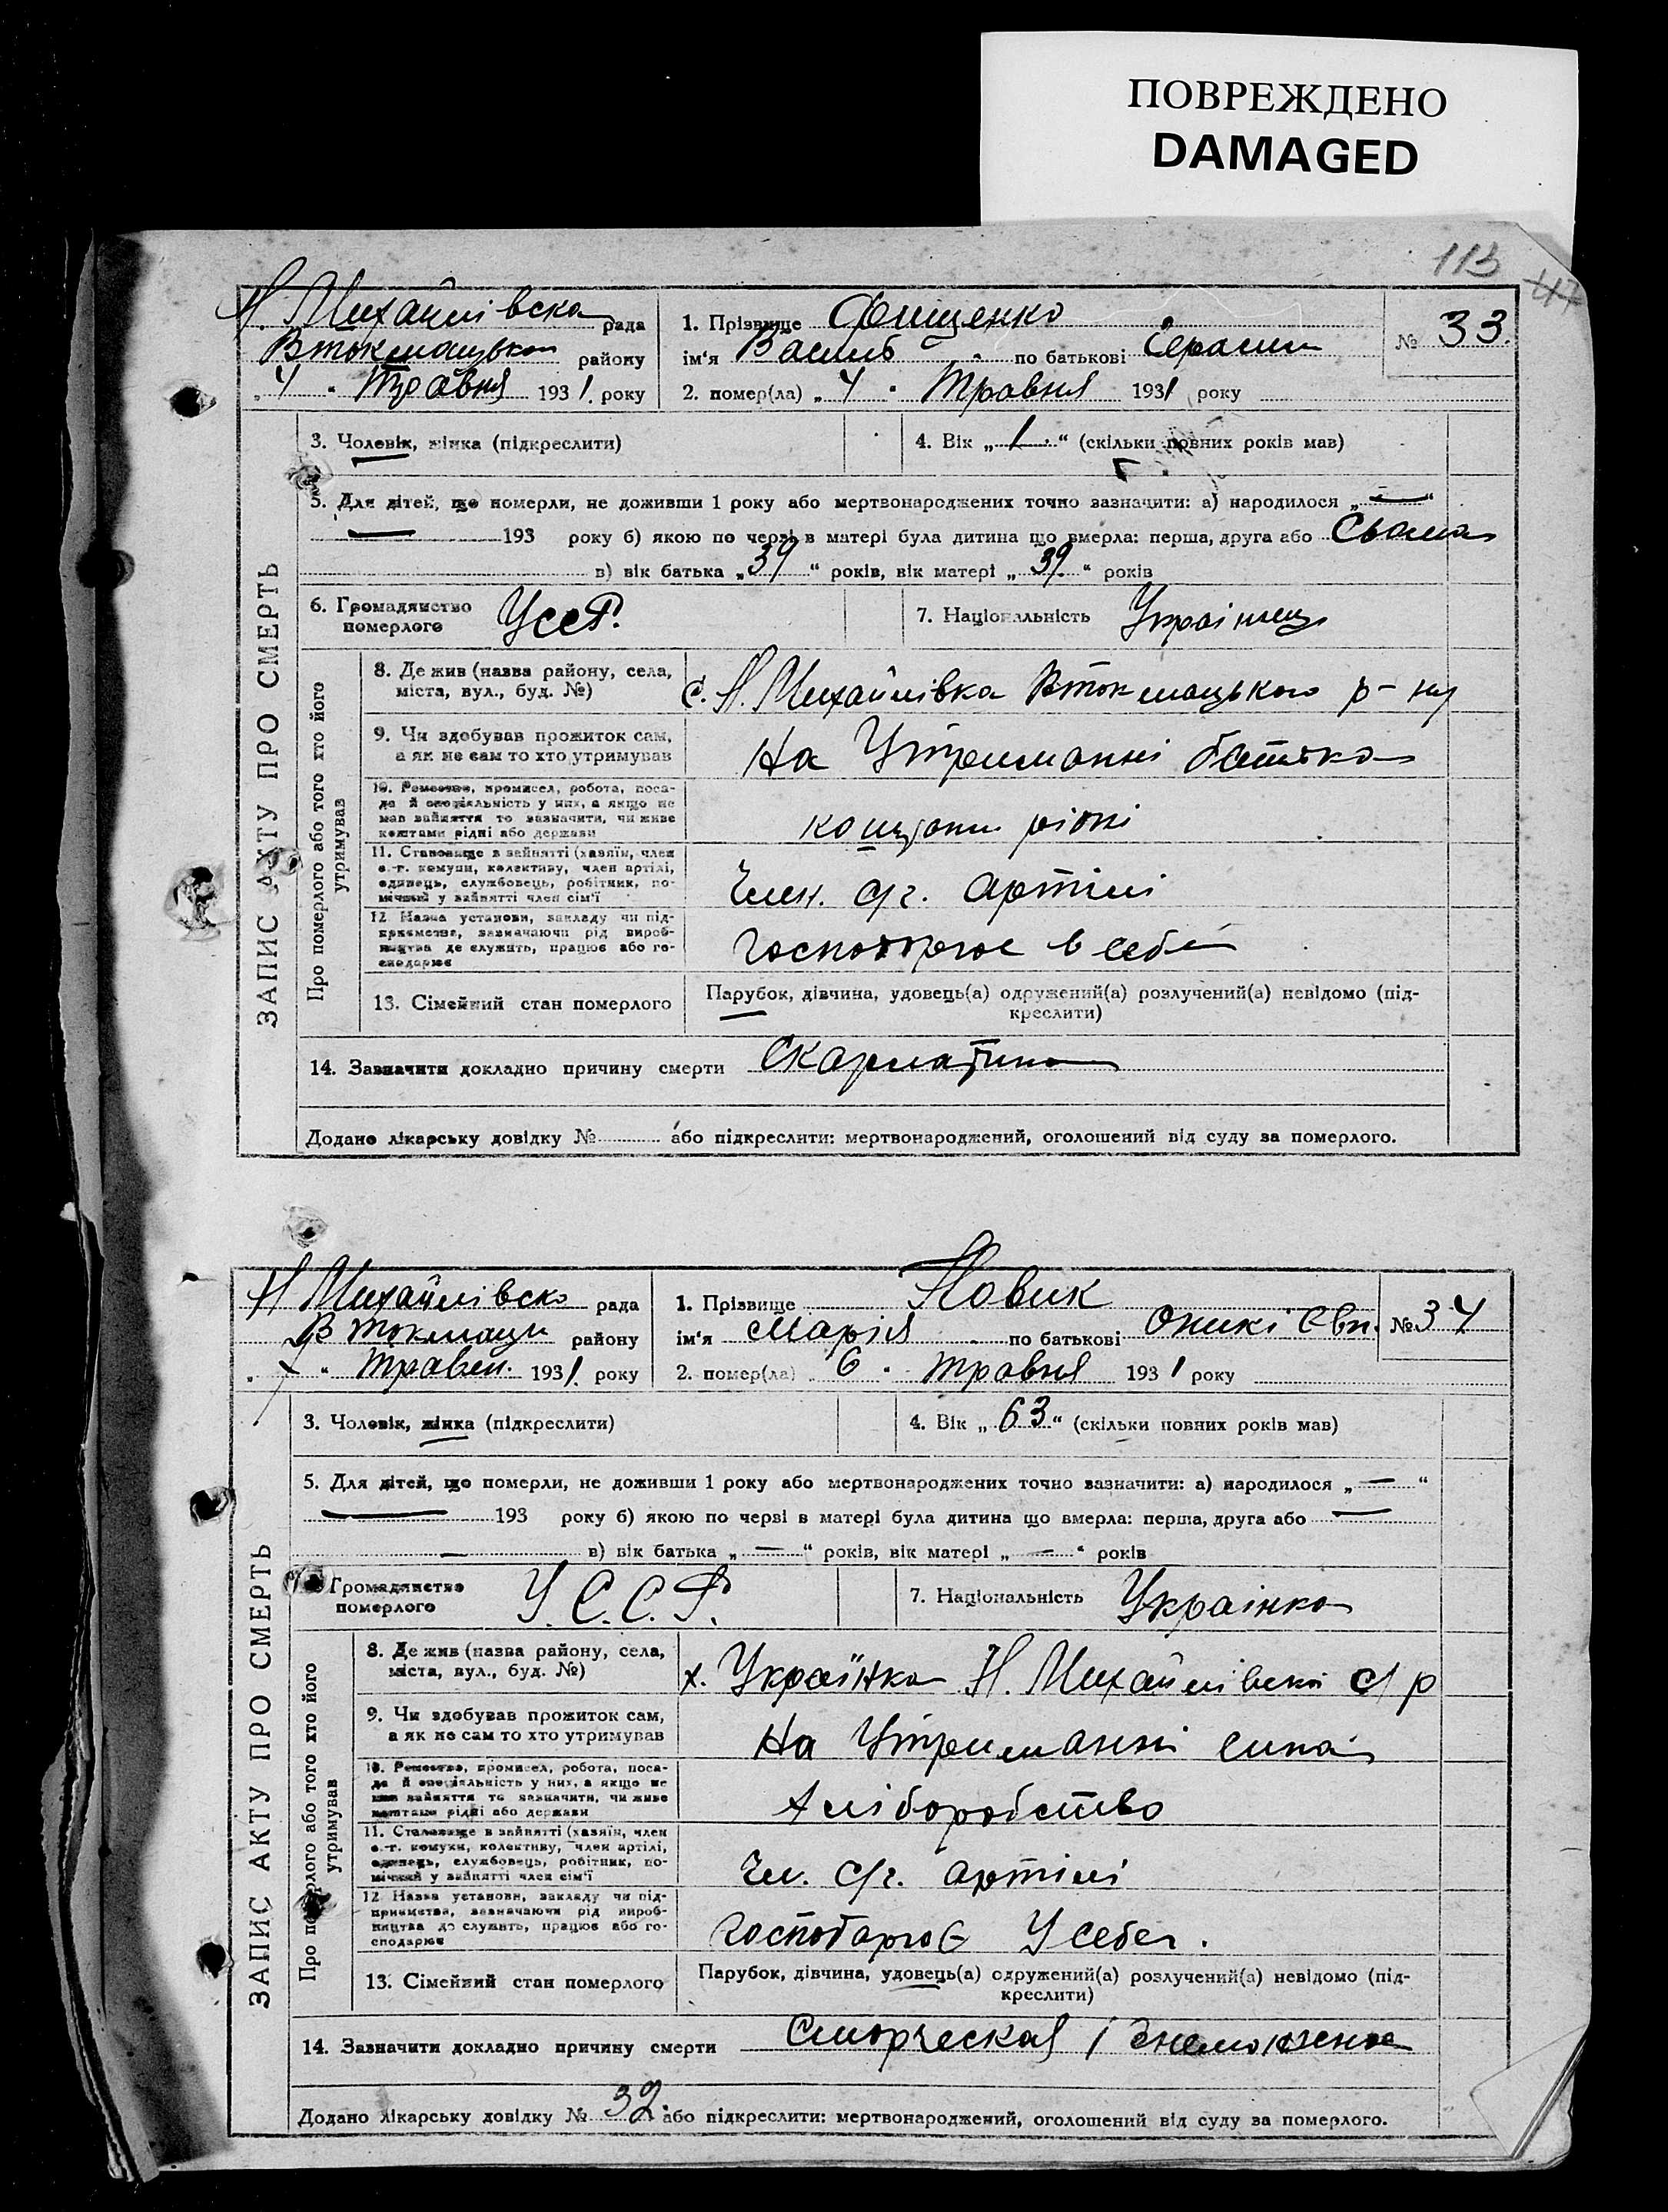 ПОВРЕЖДЕНО
DAMAGED
113
Н. Михайлівска рада
Втокмацького району
„4“ Травня 1931 року
1. Прізвище Фищенко
ім‘я Василь по батькові Герасим
№ 33.
2. помер(ла) „4“ Травня 1931 року
3. Чоловік, жінка (підкреслити)
4. Вік „1“ (скільки повних років мав)
5. Для дітей, що померли, не доживши 1 року або мертвонароджених точно зазначити: а) народилося „—“
— 193 року б) якою по черзі в матері була дитина що вмерла: перша, друга або Сьома
в) вік батька „39“ років, вік матері „39“ років
6. Громадянство померлого УССР.
7. Національність Українец
ЗАПИС АКТУ ПРО СМЕРТЬ
Про померлого або того хто його утримував
8. Де жив (назва району, села, міста, вул., буд. №)
с. Н. Михайлівка Втокмацького р-ну
9. Чи здобував прожиток сам, а як не сам то хто утримував
На Утриманні батька
10. Ремество, промисел, робота, посада й спеціяльність у них, а якщо не мав зайняття то зазначити, чи живе коштами рідні або держави
коштами рідні
11. Становище в зайнятті (хазяїн, член с.-г. комуни, колективу, член артілі, одинець, службовець, робітник, помічний у зайнятті член сім‘ї
Член. с/г. артілі
12 Назва установи, закладу чи підприємства, зазначаючи рід виробництва де служить, працює або господарює
Господарює в себе
13. Сімейний стан померлого
Парубок, дівчина, удовець(а) одружений(а) розлучений(а) невідомо (підкреслити)
14. Зазначити докладно причину смерти Скарлатина
Додано лікарську довідку № або підкреслити: мертвонароджений, оголошений від суду за померлого.
Н Михайлівско рада
В Токмацьк району
„ “ Травен. 1931 року
1. Прізвище Новик
ім‘я Марія по батькові Оникі Євп.
№ 34
2. помер(ла) 6 “ травня 1931 року
3. Чоловік, жінка (підкреслити)
4. Вік „63“ (скільки повних років мав)
5. Для дітей, що померли, не доживши 1 року або мертвонароджених точно зазначити: а) народилося „—“
— 193 року б) якою по черзі в матері була дитина що вмерла: перша, друга або —
— в) вік батька „—“ років, вік матері „—“ років
Громадянство померлого У.С.С.Р.
7. Національність Українка
ЗАПИС АКТУ ПРО СМЕРТЬ
Про померлого або того хто його утримував
8. Де жив (назва району, села, міста, вул., буд. №)
х. Українка Н. Михайлівскі с/р
9. Чи здобував прожиток сам, а як не сам то хто утримував
На Утриманні сина
10. Ремество, промисел, робота, посада й спеціяльність у них, а якщо не мав зайняття то зазначити, чи живе коштами рідні або держави
хліборобство
11. Становище в зайнятті (хазяїн, член с.-г. комуни, колективу, член артілі, одинець, службовець, робітник, помічний у зайнятті член сім‘ї
Чл. с/г. артілі
12 Назва установи, закладу чи підприємства, зазначаючи рід виробництва де служить, працює або господарює
господарює У себе.
13. Сімейний стан померлого
Парубок, дівчина, удовець(а) одружений(а) розлучений(а) невідомо (підкреслити)
14. Зазначити докладно причину смерти
Додано лікарську довідку № 32 або підкреслити: мертвонароджений, оголошений від суду за померлого.